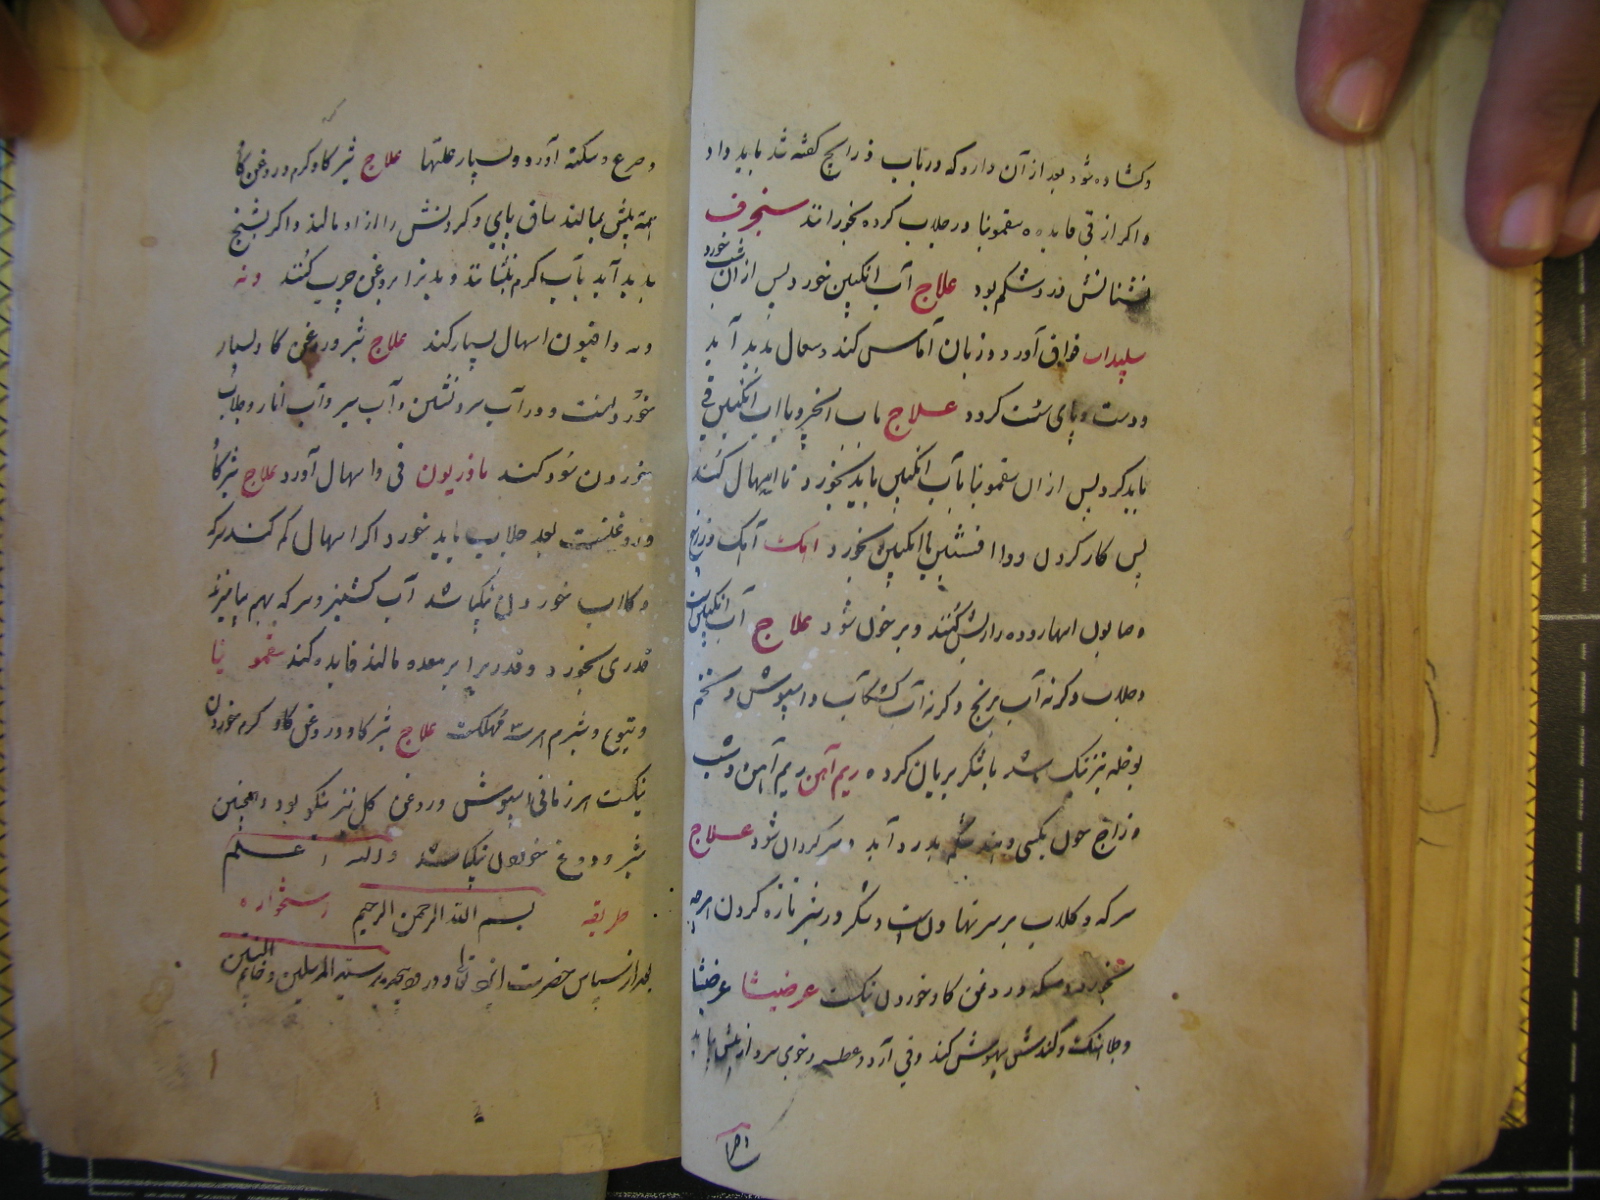 و کشاده شود بعد از آن دارو که در باب ذراریح گفته شد باید داد
و اگر از قی فایده ده سقمونیا در جلاب کرده بخورانند سنجرف
نشانش درد شکم بود علاج آب انگبین خورد پس از آن شب خورد
سپیداب فواق آورد و زبان آماس کند و سعال پدید آید
و دست و پای سست کردد علاج باب انجیر و باب انگبین قی
باید کرد پس از ان سقمونیا بآب انگبین باید بخورد تا اسهال کند
پس کار کردن دوا افسنتین با انگبین بخورد اهک آهک و زرنیخ
و صابون اینها روده را ریش کنند و بر خون شود علاج آب انگبین
و جلاب و کرنه آب برنج و کرنه آب کشکاب و اسپوش و تخم
نیز نیک باشد باشکر بریان کرده ریم آهن ریم آهن و شب
و زاج چون یکسی دهند شکم بدرد آید و سر کردان شود علاج
سرکه و کلاب بر سر نهادن است و شکر و شیر تازه کردن
بخورد و مسکه و روغن کاو خوردن نیکست عرضیثا عرضیثا
و کندش بیهوش کند و قی آرد و عطسه و خوی سرد از پیش
و صرع و سکته آورد و بسیار علتها علاج شیر کاو کرم و روغن کاو
همه پیش بمالند ساق پای و کردنش را از او مالند و اکر تشنج
پدید آید بآب کرم بنشانند و بدنرا بروغن چرب کنند
و افتیون اسهال بسیار کند علاج شیر و روغن کاو بسیار
خوردنست و در آب سرد نشین و آب سیر و آب انار و جلاب
خوردن سود کند مازریون قی و اسهال آورد علاج شیر کاو
و روغنست بعد جلاب باید خورد اکر اسهال کم کند سرکه
و کلاب خوردن نیک باشد آب کشنیز و سرکه بهم بیامیزند
قدری بخورد و قدریرا بر معده مالند فایده کند سقمونیا
و یتوع و شبرم است مهلکست علاج شیر کاو و روغن کاو کرم خوردن
نیکست هر زمانی اسپوش و روغن کل نیز نیکو بود و همچنین
شیر و دوغ خوردن نیک باشد والله اعلم
طریقه بسم الله الرحمن الرحیم استخواره
بعد از سپاس حضرت ایزد تعالی و درود بیحد بر سید المرسلین و خاتم النبین